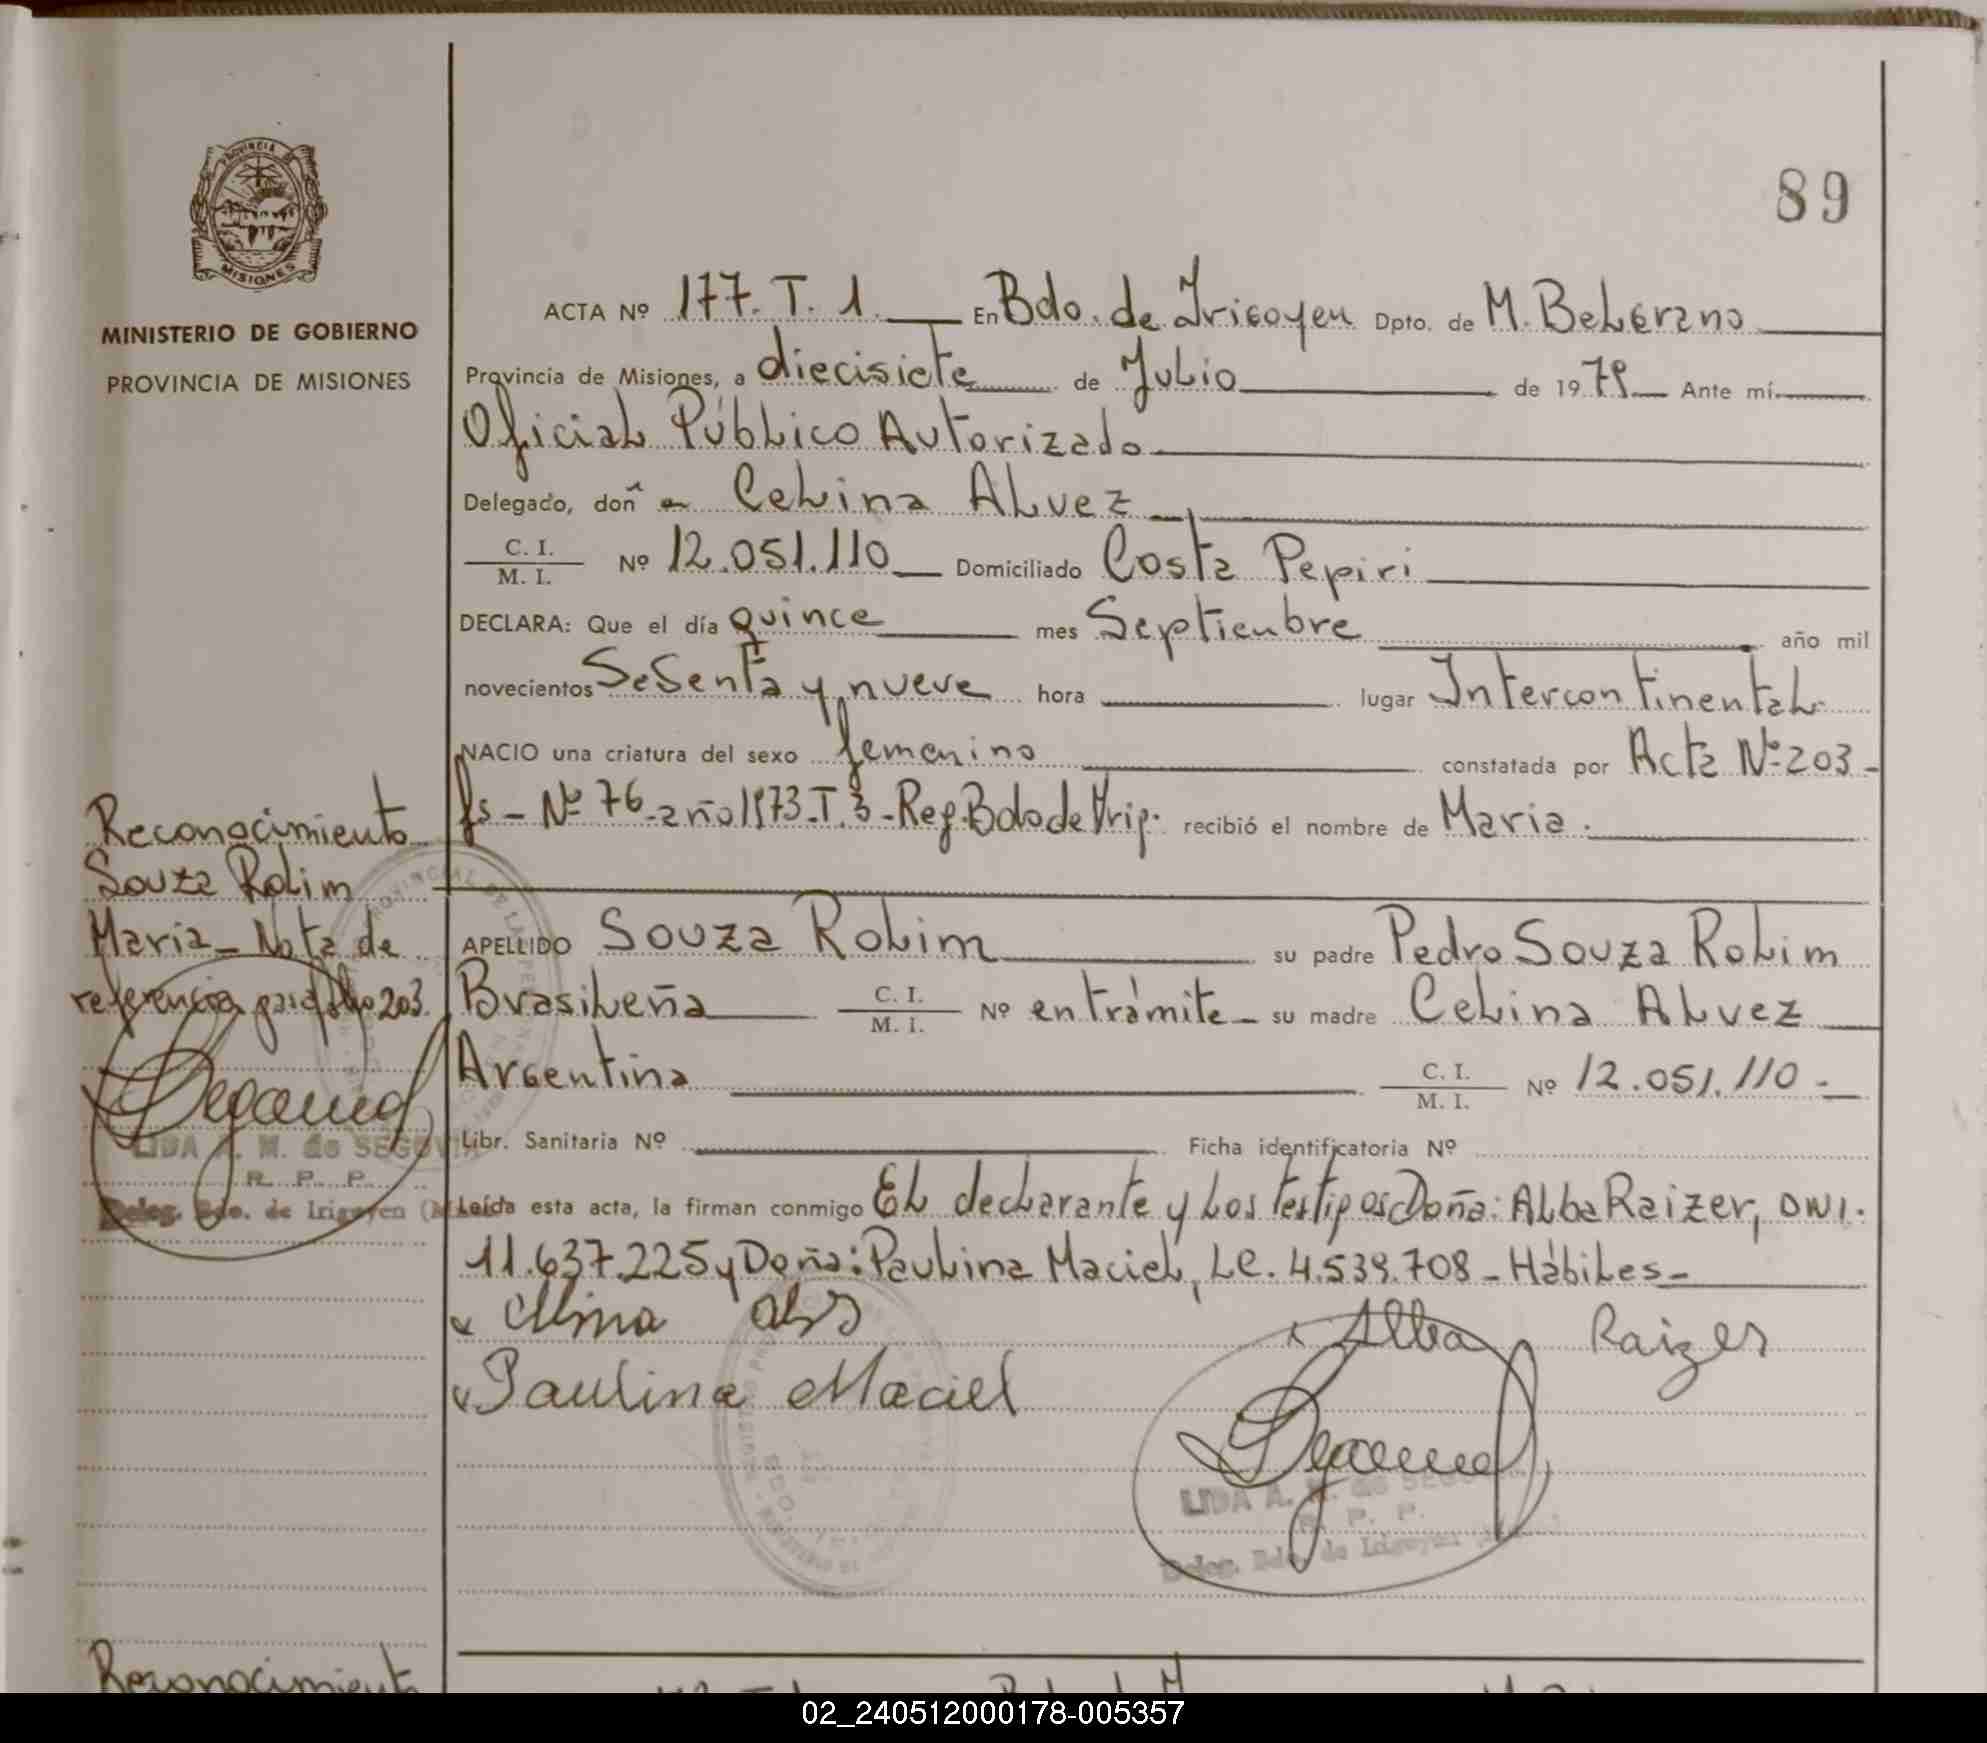 PROVINCIA DE
MISIONES
MINISTERIO DE GOBIERNO
PROVINCIA DE MISIONES
89
ACTA Nº 177. T. 1. En Bdo. de Irigoyen Dpto. de M. Belgrano
Provincia de Misiones, a diecisiete de Julio de 1979 Ante mí
Oficial Público Autorizado
Delegado, doña Celina Alvez
C. I. / M. I. Nº 12.051.110 Domiciliado Costa Pepiri
DECLARA: Que el día quince mes Septienbre año mil
novecientos Sesenta y nueve hora lugar Intercontinental
NACIO una criatura del sexo femenino constatada por Acta Nº 203-
fs - Nº 76 - año 1973 - T. 3 - Reg. Bdo de Yrig. recibió el nombre de Maria.
APELLIDO Souza Rolim su padre Pedro Souza Rolim
Brasileña C. I. / M. I. Nº en trámite - su madre Celina Alvez
Argentina C. I. / M. I. Nº 12.051.110 -
Libr. Sanitaria Nº Ficha identificatoria Nº
Leída esta acta, la firman conmigo El declarante y los testigos Doña: Alba Raizer, DNI.
11.637.225 y Doña: Paulina Maciel, LC. 4.539.708 - Hábiles -
Alba Raizer
Paulina Maciel
LIDA A. M. de SEGOVIA
R. P. P.
Deleg. Bdo. de Irigoyen
Reconocimiento
Souza Rolim
Maria - Nota de
referencia para folio 203.
LIDA A. M. de SEGOVIA
R. P. P.
Deleg. Bdo. de Irigoyen
Reconocimiento
02_240512000178-005357